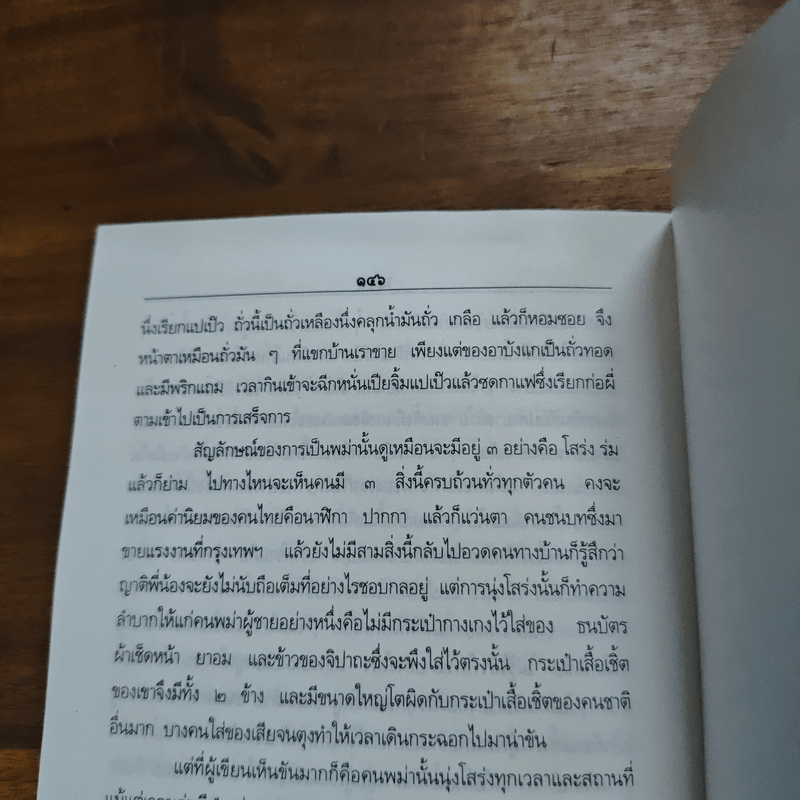 ๑๔๖
นึ่งเรียกแปเป๊ว ถั่วนี้เป็นถั่วเหลืองนึ่งคลุกน้ำมันถั่ว เกลือ แล้วก็หอมซอย จึง
หน้าตาเหมือนถั่วมัน ๆ ที่แขกบ้านเราขาย เพียงแต่ของอาบังแกเป็นถั่วทอด
และมีพริกแถม เวลากินเข้าจะฉีกหนั่นเปียจิ้มแปเป๊วแล้วซดกาแฟซึ่งเรียกก่อผี่
ตามเข้าไปเป็นการเสร็จการ
สัญลักษณ์ของการเป็นพม่านั้นดูเหมือนจะมีอยู่ ๓ อย่างคือ โสร่ง ร่ม
แล้วก็ย่าม ไปทางไหนจะเห็นคนมี ๓ สิ่งนี้ครบถ้วนทั่วทุกตัวคน คงจะ
เหมือนค่านิยมของคนไทยคือนาฬิกา ปากกา แล้วก็แว่นตา คนชนบทซึ่งมา
ขายแรงงานที่กรุงเทพฯ แล้วยังไม่มีสามสิ่งนี้กลับไปอวดคนทางบ้านก็รู้สึกว่า
ญาติพี่น้องจะยังไม่นับถือเต็มที่อย่างไรชอบกลอยู่ แต่การนุ่งโสร่งนั้นก็ทำความ
ลำบากให้แก่คนพม่าผู้ชายอย่างหนึ่งคือไม่มีกระเป๋ากางเกงไว้ใส่ของ ธนบัตร
ผ้าเช็ดหน้า ยาอม และข้าวของจิปาถะซึ่งจะพึงใส่ไว้ตรงนั้น กระเป๋าเสื้อเชิ้ต
ของเขาจึงมีทั้ง ๒ ข้าง และมีขนาดใหญ่โตผิดกับกระเป๋าเสื้อเชิ้ตของคนชาติ
อื่นมาก บางคนใส่ของเสียจนตุงทำให้เวลาเดินกระฉอกไปมาน่าขัน
แต่ที่ผู้เขียนเห็นขันมากก็คือคนพม่านั้นนุ่งโสร่งทุกเวลาและสถานที่